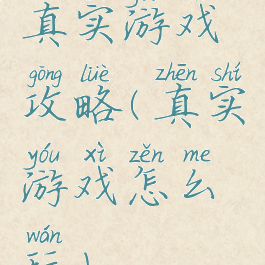 真实游戏
gōng lüè zhēn shí
攻略(真实
yóu xì zěn me
游戏怎么
wán
玩)